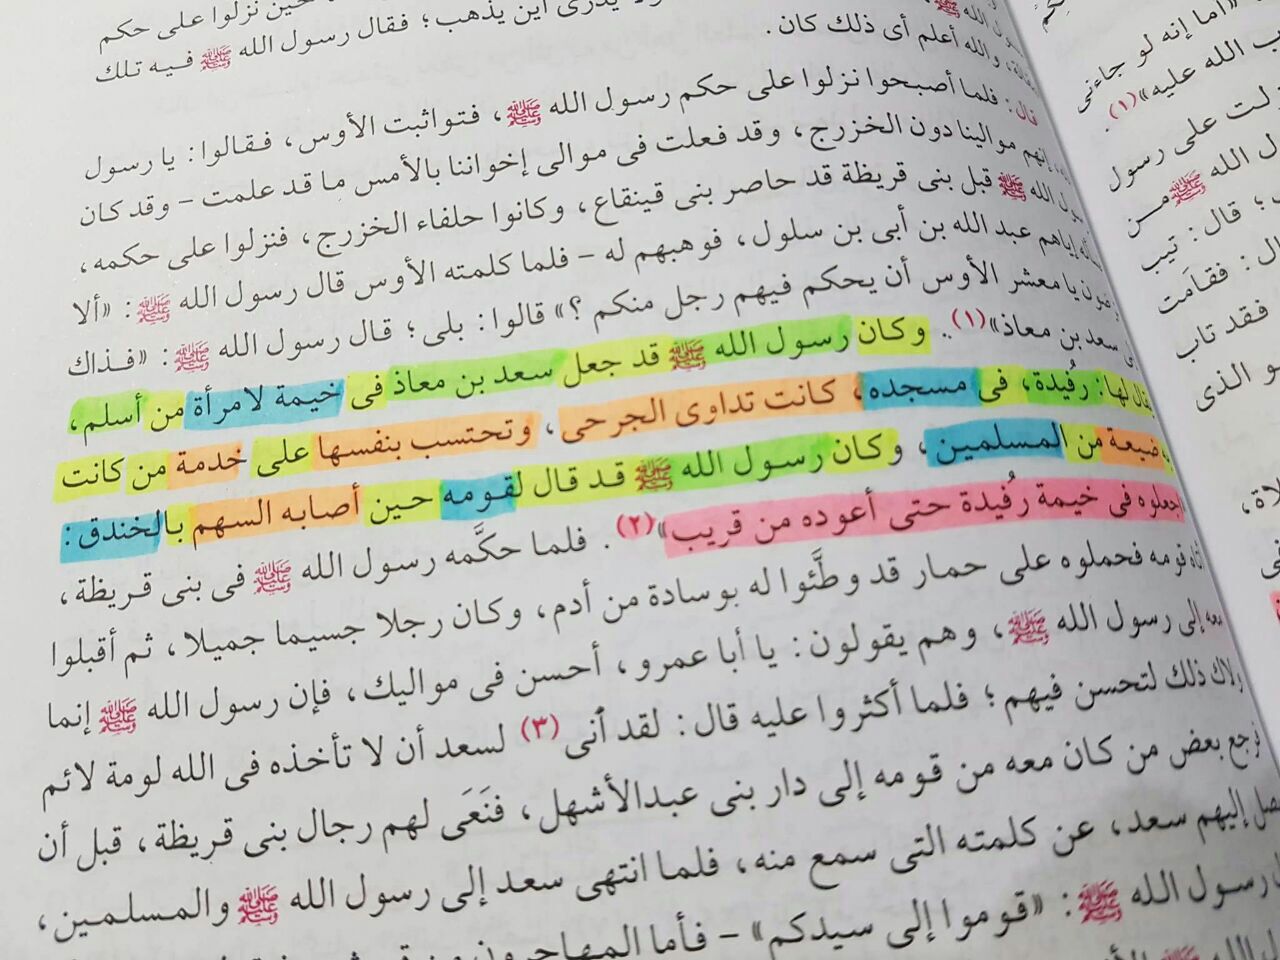 حين نزلوا على حكم
ولا يدرى أين يذهب؛ فقال رسول الله ﷺ فيه تلك
والله أعلم أى ذلك كان.
قال: فلما أصبحوا نزلوا على حكم رسول الله ﷺ، فتواثبت الأوس، فقالوا: يا رسول
إنهم موالينا دون الخزرج، وقد فعلت فى موالى إخواننا بالأمس ما قد علمت - وقد كان
رسول الله ﷺ قبل بنى قريظة قد حاصر بنى قينقاع، وكانوا حلفاء الخزرج، فنزلوا على حكمه،
إياهم عبد الله بن أبى بن سلول، فوهبهم له - فلما كلمته الأوس قال رسول الله ﷺ: «ألا
يا معشر الأوس أن يحكم فيهم رجل منكم؟» قالوا: بلى؛ قال رسول الله ﷺ: «فذاك
سعد بن معاذ»(١). وكان رسول الله ﷺ قد جعل سعد بن معاذ فى خيمة لامرأة من أسلم،
يقال لها: رُفيدة، فى مسجده، كانت تداوى الجرحى، وتحتسب بنفسها على خدمة من كانت
به ضيعة من المسلمين، وكان رسول الله ﷺ قد قال لقومه حين أصابه السهم بالخندق:
اجعلوه فى خيمة رُفيدة حتى أعوده من قريب»(٢). فلما حكَّمه رسول الله ﷺ فى بنى قريظة،
أتاه قومه فحملوه على حمار قد وطَّئوا له بوسادة من أدم، وكان رجلا جسيما جميلا، ثم أقبلوا
معه إلى رسول الله ﷺ، وهم يقولون: يا أبا عمرو، أحسن فى مواليك، فإن رسول الله ﷺ إنما
ولاك ذلك لتحسن فيهم؛ فلما أكثروا عليه قال: لقد أنى(٣) لسعد أن لا تأخذه فى الله لومة لائم
فرجع بعض من كان معه من قومه إلى دار بنى عبدالأشهل، فنَعَى لهم رجال بنى قريظة، قبل أن
يصل إليهم سعد، عن كلمته التى سمع منه، فلما انتهى سعد إلى رسول الله ﷺ والمسلمين،
رسول الله ﷺ: «قوموا إلى سيدكم» - فأما المهاجرون من
«أما إنه لو جاءنى
الله عليه»(١).
على رسول
الله ﷺ من
قال: تيب
فقامت
فقد تاب
الذى